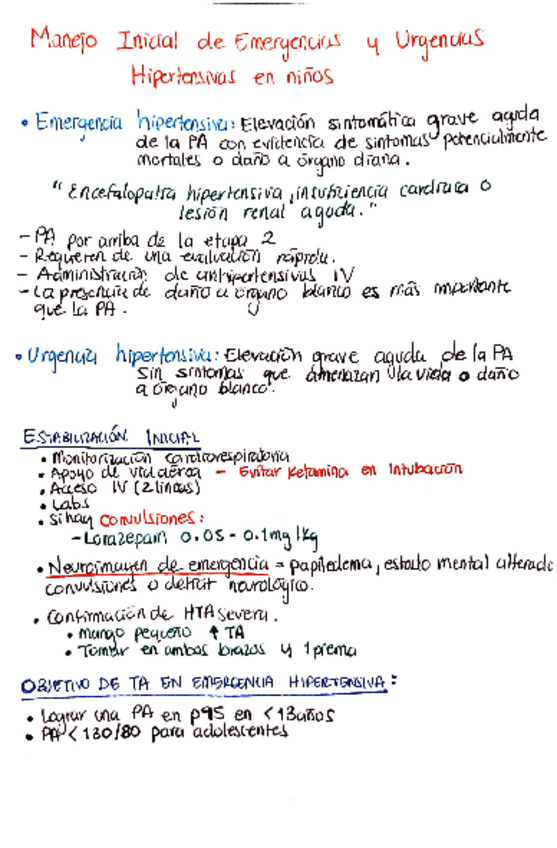 Manejo Inicial de Emergencias y Urgencias
Hipertensivas en niños
• Emergencia hipertensiva: Elevación sintomática grave aguda
de la PA con evidencia de sintomas potencialmente
mortales o daño a órgano diana.
"Encefalopatía hipertensiva, insuficiencia cardiaca o
lesión renal aguda."
- PA por arriba de la etapa 2
- Requieren de una evaluación rápida.
- Administración de antihipertensivos IV
- La presencia de daño a órgano blanco es más importante
que la PA.
• Urgencia hipertensiva: Elevación grave aguda de la PA
sin síntomas que amenazan la vida o daño
a órgano blanco.
ESTABILIZACIÓN INICIAL
• Monitorización cardiorespiratoria
• Apoyo de vía aérea - Evitar Ketamina en Intubación
• Acceso IV (2 lineas)
• Labs
• Si hay convulsiones:
- Lorazepam 0.05 - 0.1mg/kg
• Neuroimagen de emergencia = papiledema, estado mental alterado
convulsiones o deficit neurológico.
• Confirmación de HTA severa.
• Mango pequeño ↑ TA
• Tomar en ambos brazos y 1 pierna
OBJETIVO DE TA EN EMERGENCIA HIPERTENSIVA:
• Lograr una PA en p95 en <13años
• PA < 130/80 para adolescentes